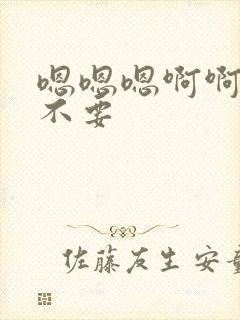 嗯嗯嗯啊啊
不要
佐藤友生 安童